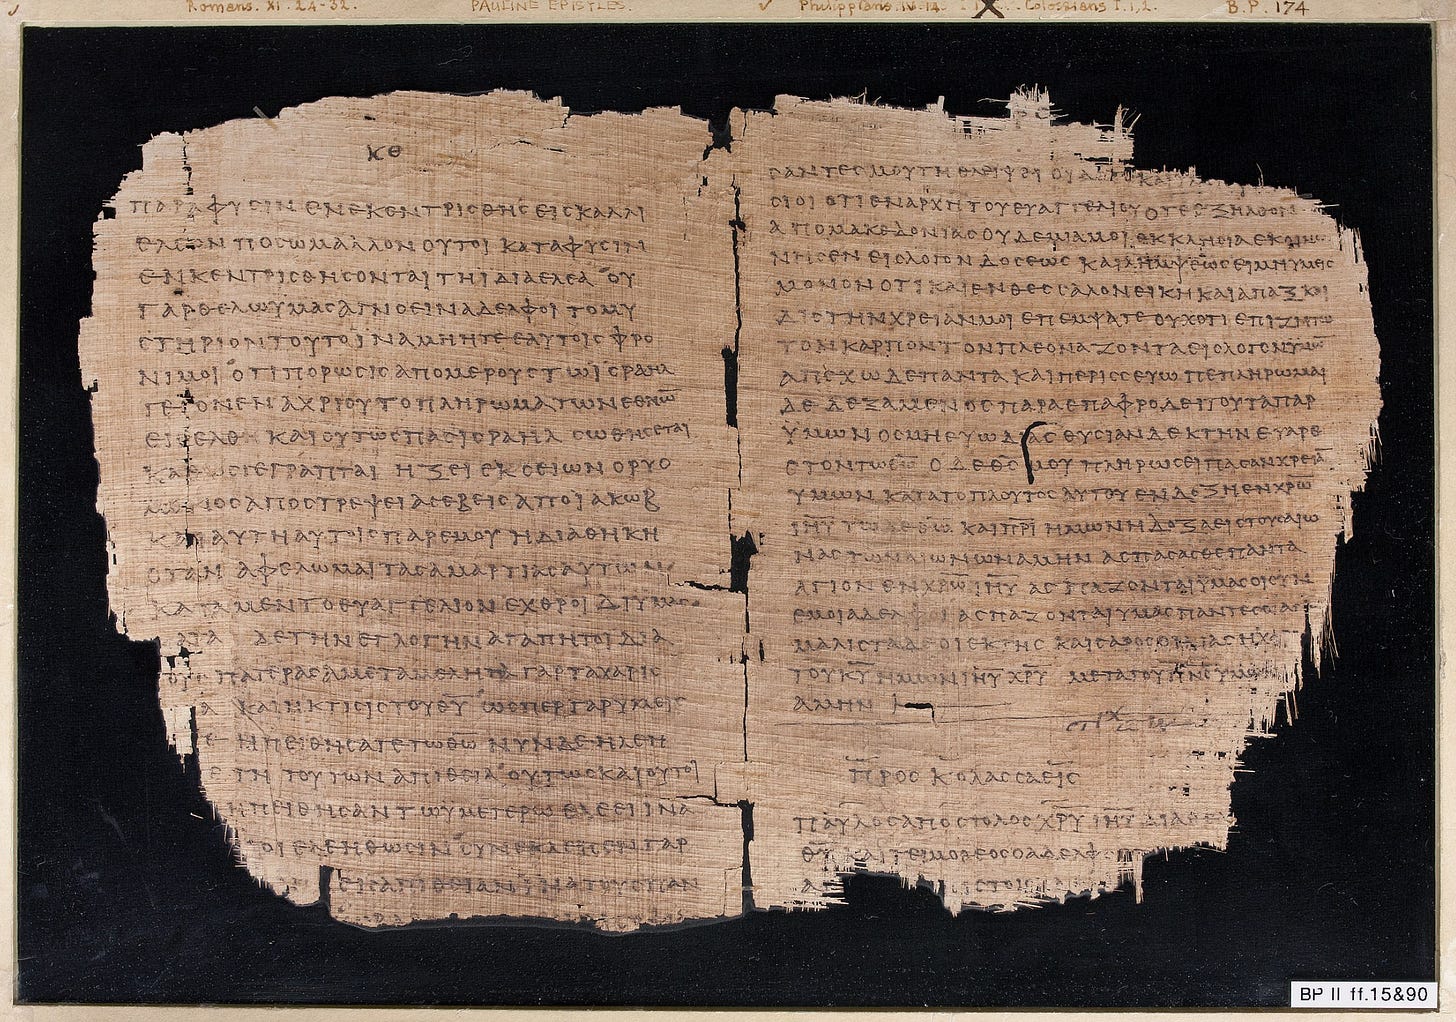 Romans. XI. 24-32. PAULINE EPISTLES. Philippians. IV. 14. Colossians I. 1, 2. B.P. 174
ΚΘ
ΠΑΡΑΦΥCΙΝ ΕΝΕΚΕΝΤΡΙCΘΗC ΕΙCΚΑΛΛΙ
ΕΛΕΟΝ ΠΟCΩΜΑΛΛΟΝ ΟΥΤΟΙ ΚΑΤΑΦΥCΙΝ
ΕΝΚΕΝΤΡΙCΘΗCΟΝΤΑΙ ΤΗΙΔΙΑΕΛΕΑ ΟΥ
ΓΑΡΘΕΛΩΥΜΑCΑΓΝΟΕΙΝ ΑΔΕΛΦΟΙ ΤΟΜΥ
CΤΗΡΙΟΝΤΟΥΤΟΙΝΑΜΗΗΤΕ ΕΑΥΤΟΙC ΦΡΟ
ΝΙΜΟΙ ΟΤΙΠΟΡΩCΙC ΑΠΟΜΕΡΟΥC ΤΩΙCΡΑΗΛ
ΓΕΓΟΝΕΝ ΑΧΡΙΟΥΤΟΠΛΗΡΩΜΑΤΩΝΕΘΝΩ̅
ΕΙCΕΛΘ ΚΑΙΟΥΤΩCΠΑCΙCΡΑΗΛ CΩΘΗCΕΤΑΙ
ΚΑΘΩCΓΕΓΡΑΠΤΑΙ ΗΞΕΙ ΕΚ CΕΙΩΝ ΟΡΥΟ
ΜΕΝΟC ΑΠΟCΤΡΕΨΕΙ ΑCΕΒΕΙC ΑΠΟΙΑΚΩΒ
ΚΑΙΑΥΤΗΑΥΤΟΙC ΠΑΡΕΜΟΥ ΗΔΙΑΘΗΚΗ
ΟΤΑΝ ΑΦΕΛΩΜΑΙ ΤΑCΑΜΑΡΤΙΑCΑΥΤΩ
ΚΑΤΑΜΕΝΤΟΕΥΑΓΓΕΛΙΟΝ ΕΧΘΡΟΙ ΔΙΥΜΑC
ΔΕΤΗΝΕΓΛΟΓΗΝ ΑΓΑΠΗΤΟΙ ΔΙΑ
ΤΟΥC ΠΑΤΕΡΑCΑΜΕΤΑΜΕΛΗΤΑ ΓΑΡΤΑΧΑΡΙC
ΚΑΙΗΚΛΗCΙCΤΟΥΘ̅Υ̅ ΩCΠΕΡΓΑΡΥΜΕΙC
ΗΠΕΙΘΗCΑΤΕΤΩΘ̅Ω̅ ΝΥΝΔΕ ΗΛΕΗ
ΤΗ ΤΟΥΤΩΝ ΑΠΙΘΕΙΑ ΟΥΤΩCΚΑΙΟΥΤΟΙ
ΗΠΕΙΘΗCΑΝ ΤΩΥΜΕΤΕΡΩ ΕΛΕΕΙ ΙΝΑ
ΟΙ ΕΛΕΗΘΩCΙΝ CΥΝΕΚΛΕΙCΕΝ ΓΑΡ
ΕΙC ΑΠΙΘΕΙΑΝ ΙΝΑ ΤΟΥCΠΑΝ
CΑΝΤΕCΜΟΥΤΗ ΘΛΕΙΨΕΙ ΟΙΔΑΤΕ
CΙΟΙ ΟΤΙΕΝΑΡΧΗ ΤΟΥΕΥΑΓΓΕΛΙΟΥ ΟΤΕΕΞΗΛΘΟΝ
ΑΠΟΜΑΚΕΔΟΝΙΑC ΟΥΔΕΜΙΑΜΟΙ ΕΚΚΛΗCΙΑ ΕΚΟΙΝΩ
ΝΗCΕΝ ΕΙCΛΟΓΟΝ ΔΟCΕΩC ΚΑΙΛΗΜΨΕΩC ΕΙΜΗΥΜΕΙC
ΜΟΝΟΝ ΟΤΙ ΚΑΙΕΝΘΕCCΑΛΟΝΕΙΚΗ ΚΑΙΑΠΑΞ ΚΑΙ
ΔΙCΤΗΝΧΡΕΙΑΝΜΟΙ ΕΠΕΜΨΑΤΕ ΟΥΧΟΤΙ ΕΠΙΖΗΤΩ
ΤΟΝ ΚΑΡΠΟΝ ΤΟΝΠΛΕΟΝΑΖΟΝΤΑΕΙCΛΟΓΟΝΥΜΩ
ΑΠΕΧΩΔΕΠΑΝΤΑ ΚΑΙΠΕΡΙCCΕΥΩ ΠΕΠΛΗΡΩΜΑΙ
ΔΕ ΔΕΞΑΜΕΝΟC ΠΑΡΑ ΕΠΑΦΡΟΔΕΙΤΟΥ ΤΑΠΑΡ
ΥΜΩΝ ΟCΜΗΕΥΩΔΙΑC ΘΥCΙΑΝΔΕΚΤΗΝ ΕΥΑΡΕ
CΤΟΝΤΩΘ̅Ω̅ Ο ΔΕ Θ̅C̅ ΜΟΥ ΠΛΗΡΩCΕΙΠΑCΑΝΧΡΕΙΑ
ΥΜΩΝ ΚΑΤΑΤΟΠΛΟΥΤΟC ΑΥΤΟΥ ΕΝΔΟΞΗ ΕΝΧΡΩ
Ι̅Η̅Υ̅ ΤΩΔΕΘ̅Ω̅ ΚΑΙΠ̅Ρ̅Ι̅ ΗΜΩΝ Η ΔΟΞΑΕΙCΤΟΥCΑΙΩ
ΝΑC ΤΩΝΑΙΩΝΩΝΑΜΗΝ ΑCΠΑCΑCΘΕΠΑΝΤΑ
ΑΓΙΟΝ ΕΝΧΡΩ Ι̅Η̅Υ̅ ΑCΠΑΖΟΝΤΑΙΥΜΑCΟΙCΥΝ
ΕΜΟΙΑΔΕΛΦΟΙ ΑCΠΑΖΟΝΤΑΙΥΜΑCΠΑΝΤΕCΟΙΑΓΙ
ΜΑΛΙCΤΑΔΕΟΙΕΚΤΗC ΚΑΙCΑΡΟC ΟΙΚΙΑC ΗΧΑΡ
ΤΟΥΚ̅Υ̅ ΗΜΩΝ Ι̅Η̅Υ̅ Χ̅Ρ̅Υ̅ ΜΕΤΑΤΟΥΠ̅Ν̅C̅ΥΜΩ
ΑΜΗΝ
ΠΡΟC ΚΟΛΑCCΑΕΙC
ΠΑΥΛΟCΑΠΟCΤΟΛΟC Χ̅Ρ̅Υ̅ Ι̅Η̅Υ̅ ΔΙΑΘΕ
Θ̅Υ̅ ΚΑΙ ΤΕΙΜΟΘΕΟCΟΑΔΕΛΦ
BP II ff.15&90